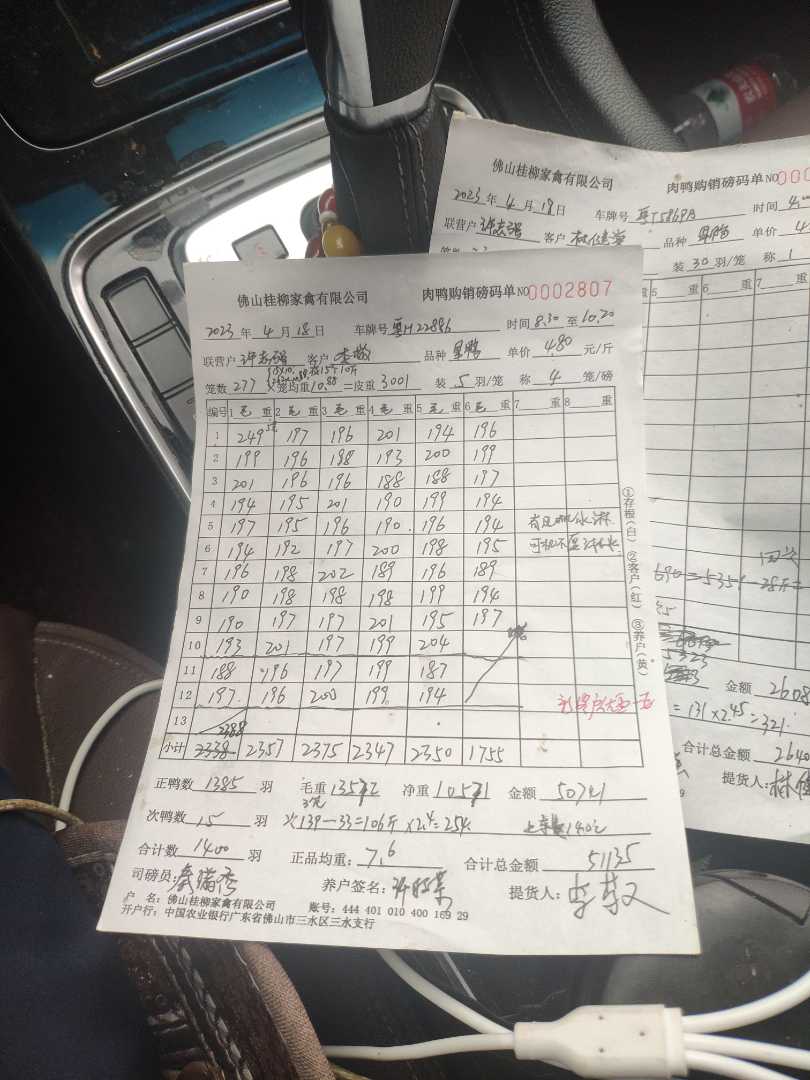 佛山桂柳家禽有限公司 肉鸭购销磅码单 NO 0002807
2023 年 4 月 18 日 车牌号 粤H22886 时间 8.30 至 10.20
联营户 许志强 客户 李敬 品种 单价 4.80 元/斤
笼数 277 ×笼均重 10.88 =皮重 3001 装 5 羽/笼 称 4 笼/磅
编号 1 毛 重 2 毛 重 3 毛 重 4 毛 重 5 毛 重 6 毛 重 7 重 8 重
1 249 197 196 201 194 196
2 199 196 198 193 200 199
3 201 196 196 188 188 197
4 194 195 201 190 199 194
5 197 195 196 190 196 194
6 194 192 197 200 198 195
7 196 198 202 189 196 189
8 190 198 198 198 199 194
9 190 197 197 201 195 197
10 193 201 197 199 204
11 188 196 197 199 187
12 197 196 200 199 194
13
2388
小计 2338 2357 2375 2347 2350 1755
正鸭数 1385 羽 毛重 净重 金额 50741
次鸭数 15 羽 139-33=106斤×2.4=254
合计数 1400 羽 正品均重: 7.6 合计总金额 51135
司磅员: 养户签名: 提货人:
户 名: 佛山桂柳家禽有限公司 账号: 444 401 010 400 169 29
开户行: 中国农业银行广东省佛山市三水区三水支行
①存根(白) ②客户(红) ③养户(黄)
佛山桂柳家禽有限公司 肉鸭购销磅码单 NO 000
2023 年 4 月 18 日 车牌号 粤J5869A 时间
联营户 许志强 客户 品种 单价
装 30 羽/笼 称 1
5 重 6 重 7
690=5351-28斤=
5323
金额 2608
=131×2.45=321
合计总金额 2640
提货人: